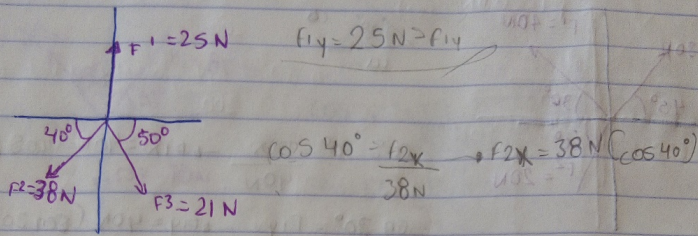 F1=25N
F1y=25N=F1y
40°
50°
F2=38N
F3=21N
cos 40° = F2x/38N
F2x=38N(cos40°)